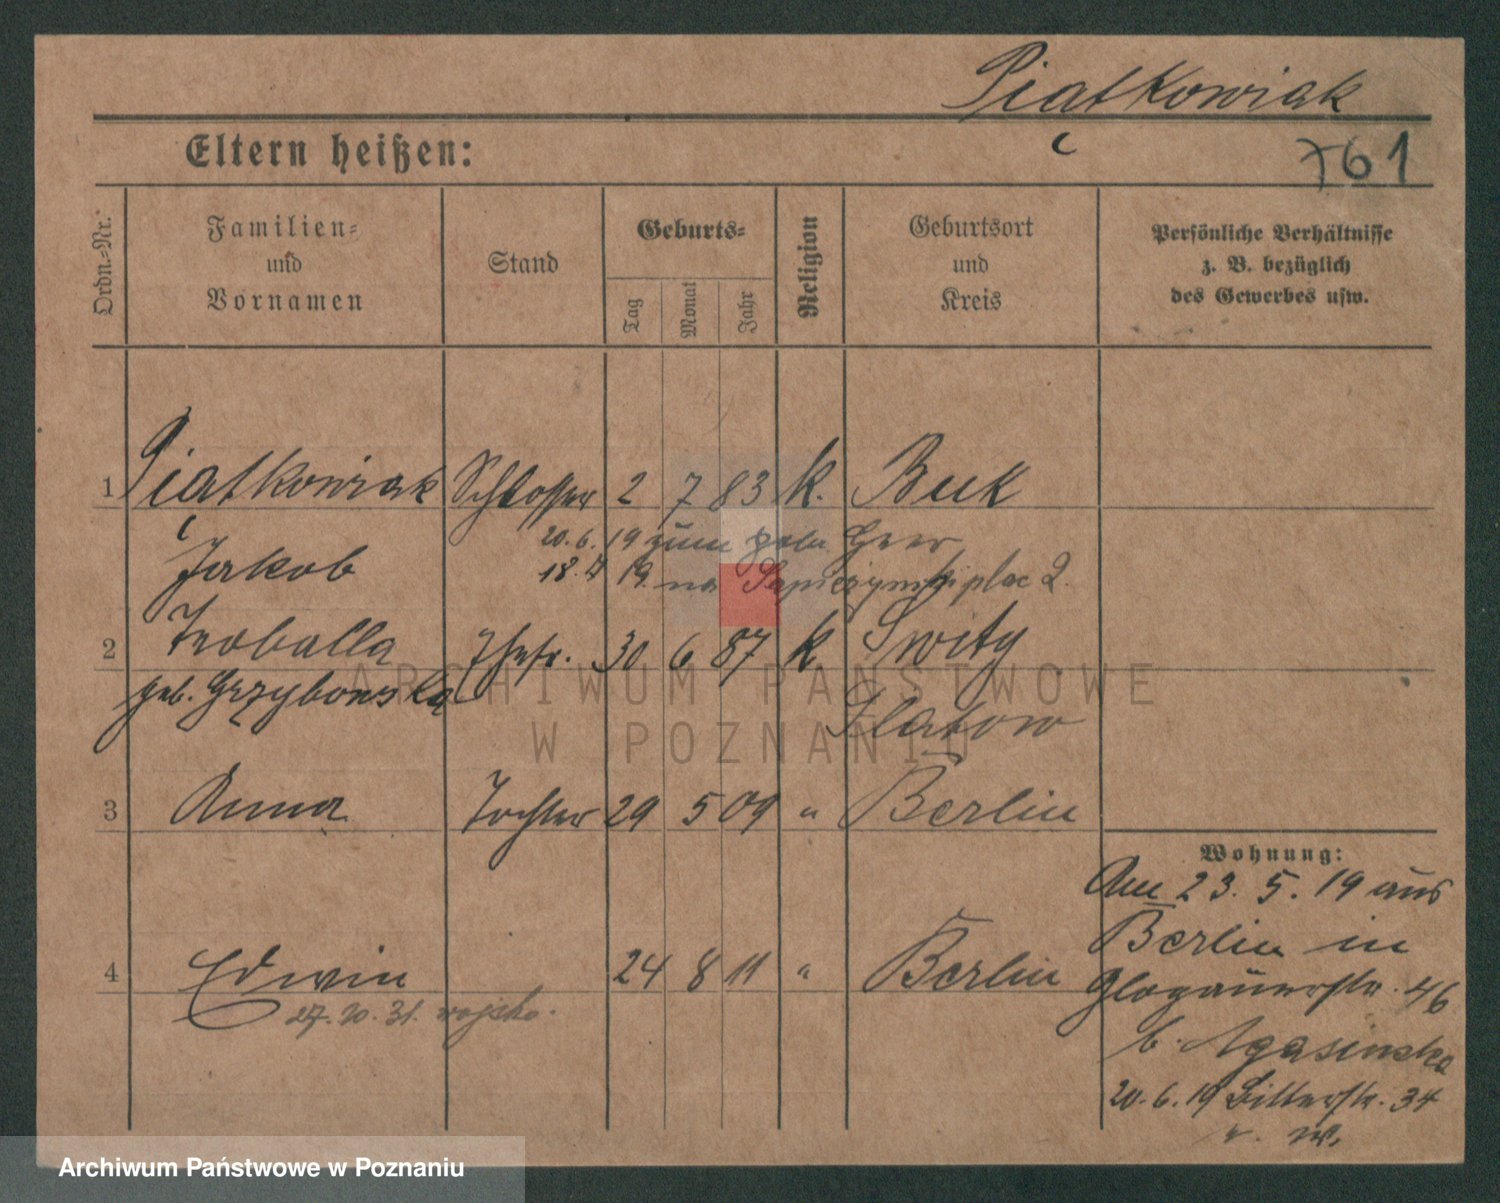 Piątkowiak
761
Eltern heißen:
Ordn.-Nr.
Familien- und Vornamen
Stand
Geburts-
Tag
Monat
Jahr
Religion
Geburtsort und Kreis
Persönliche Verhältnisse
z. B. bezüglich
des Gewerbes usw.
1 Piątkowiak Schlosser 2 7 83 k. Buk
Jakob
20.6.19 zum poln Heer
18. 19. na plac 2.
2 Ehefr. 30 6 87 k
geb. Grzybowska Flatow
3 Anna Tochter 29 5 09 " Berlin
4 Edwin 24 8 11 " Berlin
31. wojsko.
Wohnung:
Am 23.5.19 aus
Berlin in
Glogauerstr. 46
b.
20.6.19 Ritterstr. 34
ARCHIWUM PAŃSTWOWE
W POZNANIU
Archiwum Państwowe w Poznaniu